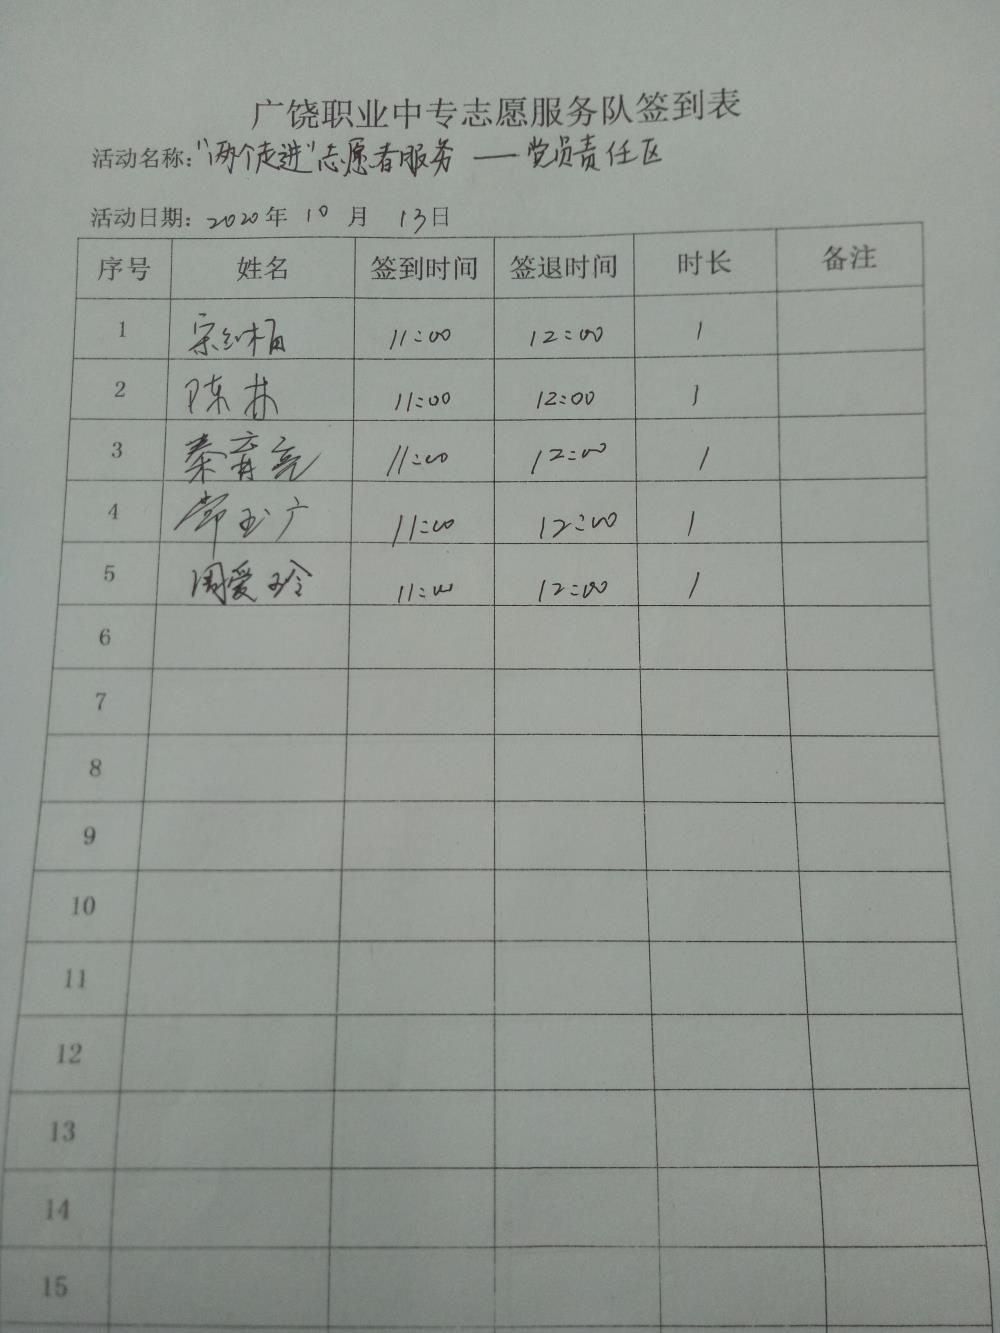 广饶职业中专志愿服务队签到表
活动名称：“两个走进”志愿者服务 —— 党员责任区
活动日期：2020年 10 月 13日
序号 姓名 签到时间 签退时间 时长 备注
1 宋红梅 11:00 12:00 1
2 陈林 11:00 12:00 1
3 秦育亮 11:00 12:00 1
4 常玉广 11:00 12:00 1
5 周爱玲 11:00 12:00 1
6
7
8
9
10
11
12
13
14
15